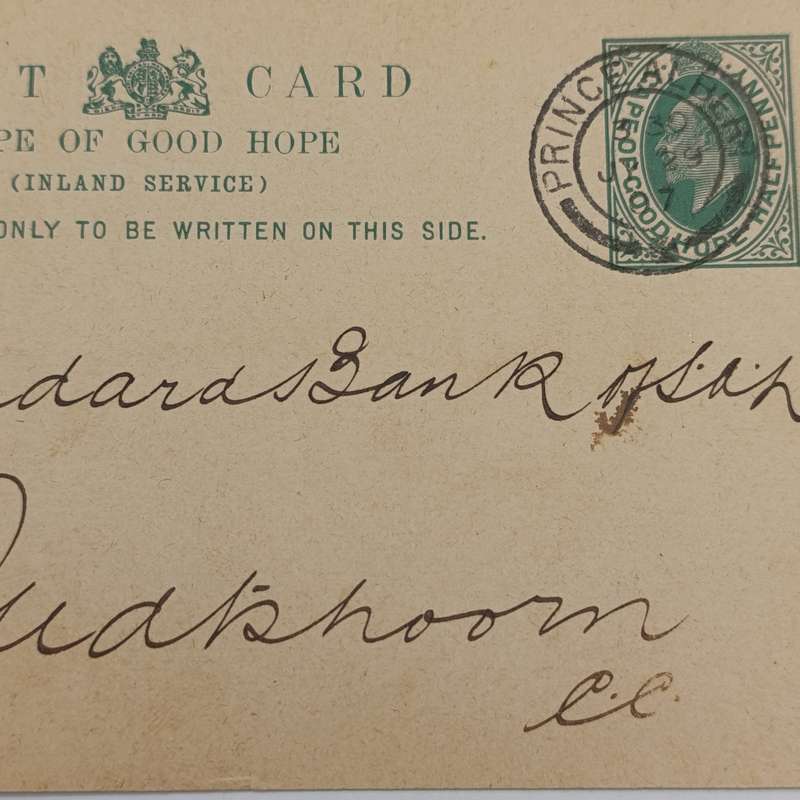 T CARD
PE OF GOOD HOPE
(INLAND SERVICE)
ONLY TO BE WRITTEN ON THIS SIDE.
PRINCE ALBERT
CAPE OF GOOD HOPE HALFPENNY
dard Bank of S.A. L
Oudtshoorn
C.C.